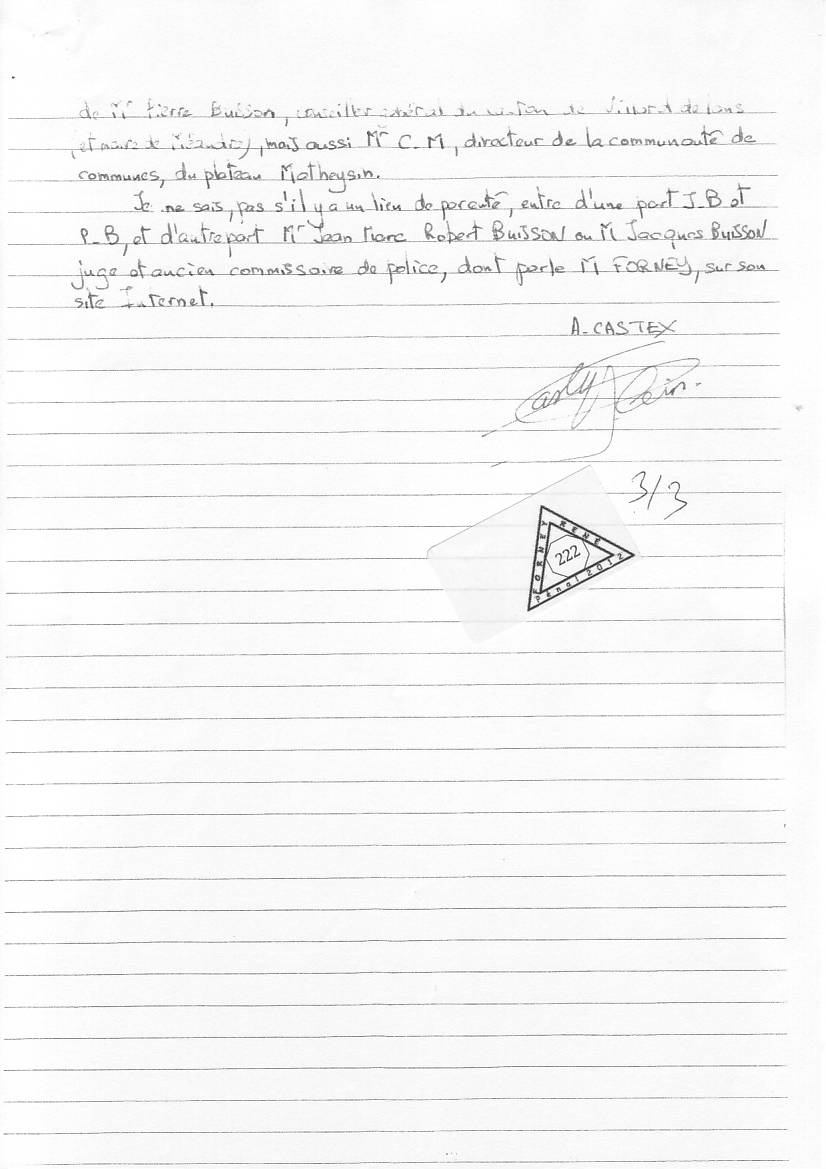 de Mr Pierre Buisson, conseiller général du canton de Villard de lans
(et maire de Méaudre), mais aussi Mr C.M, directeur de la communauté de
communes, du plateau Matheysin.
Je ne sais, pas s'il y a un lien de parenté, entre d'une part J_B et
P_B, et d'autre part Mr Jean Marc Robert BUISSON ou M Jacques BUISSON
juge et ancien commissaire de police, dont parle M FORNEY, sur son
site Internet.
A. CASTEX
3/3
FORNEY RENE
222
Pénal 2012